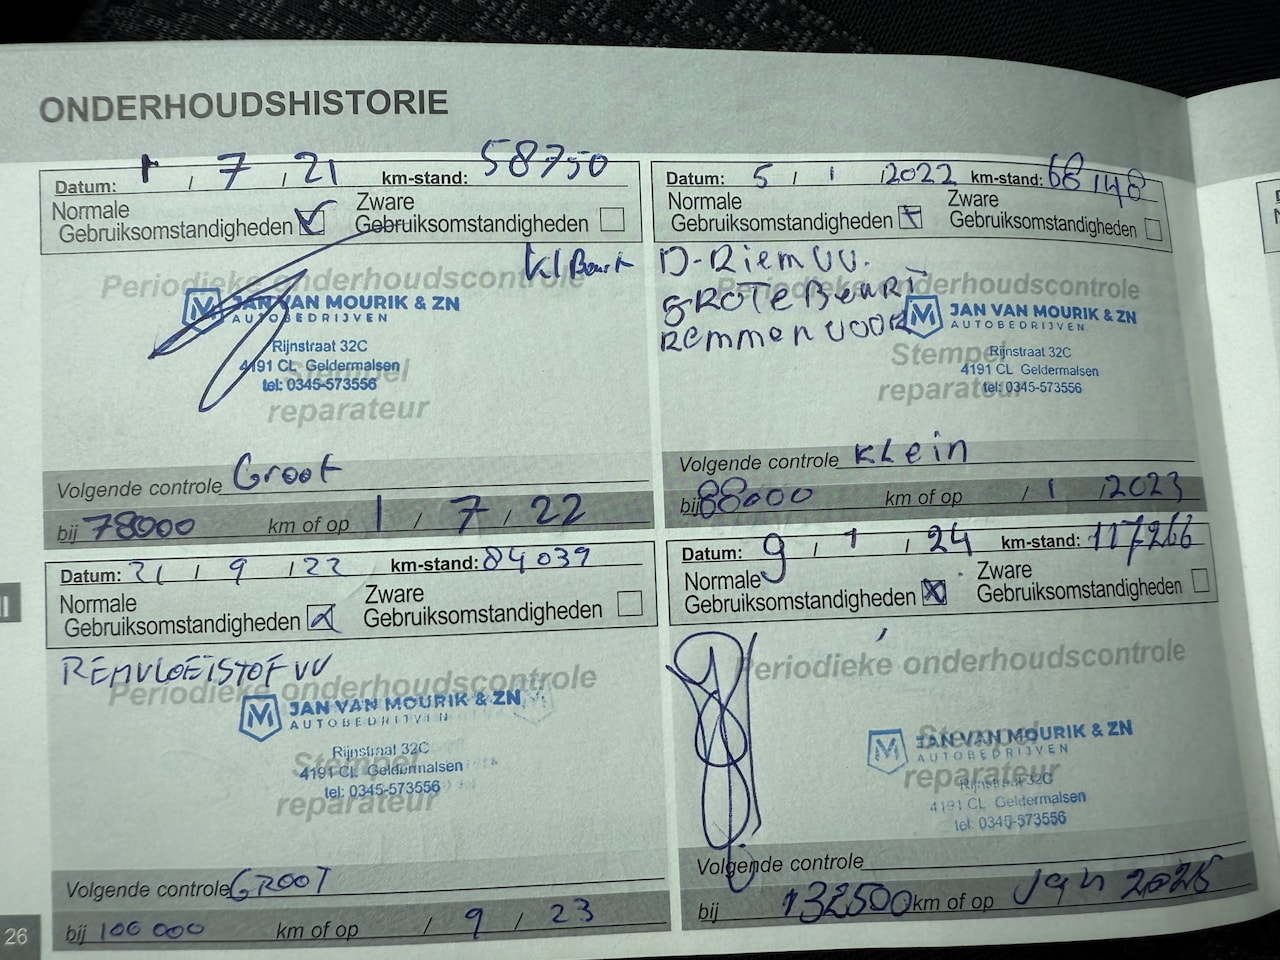 ONDERHOUDSHISTORIE
Datum: 1 / 7 / 21 km-stand: 58750
Normale Gebruiksomstandigheden
Zware Gebruiksomstandigheden
kl Beurt
Periodieke onderhoudscontrole
JAN VAN MOURIK & ZN
AUTOBEDRIJVEN
Rijnstraat 32C
4191 CL Geldermalsen
tel: 0345-573556
Stempel
reparateur
Volgende controle Groot
bij 78000 km of op 1 / 7 / 22
Datum: 5 / 1 / 2022 km-stand: 68148
Normale Gebruiksomstandigheden
Zware Gebruiksomstandigheden
D-Riem VV.
GROTE BEURT
REMMEN VOOR
Periodieke onderhoudscontrole
JAN VAN MOURIK & ZN
AUTOBEDRIJVEN
Rijnstraat 32C
4191 CL Geldermalsen
tel: 0345-573556
Stempel
reparateur
Volgende controle KLein
bij 88000 km of op / 1 / 2023
Datum: 21 / 9 / 22 km-stand: 84039
Normale Gebruiksomstandigheden
Zware Gebruiksomstandigheden
REMVLOEISTOF VV
Periodieke onderhoudscontrole
JAN VAN MOURIK & ZN
AUTOBEDRIJVEN
Rijnstraat 32C
4191 CL Geldermalsen
tel: 0345-573556
Stempel
reparateur
Volgende controle GROOT
bij 100 000 km of op / 9 / 23
Datum: 9 / 1 / 24 km-stand: 117266
Normale Gebruiksomstandigheden
Zware Gebruiksomstandigheden
Periodieke onderhoudscontrole
JAN VAN MOURIK & ZN
AUTOBEDRIJVEN
Rijnstraat 32C
4191 CL Geldermalsen
tel: 0345-573556
Stempel
reparateur
Volgende controle
bij 132500 km of op Jan 2025
26